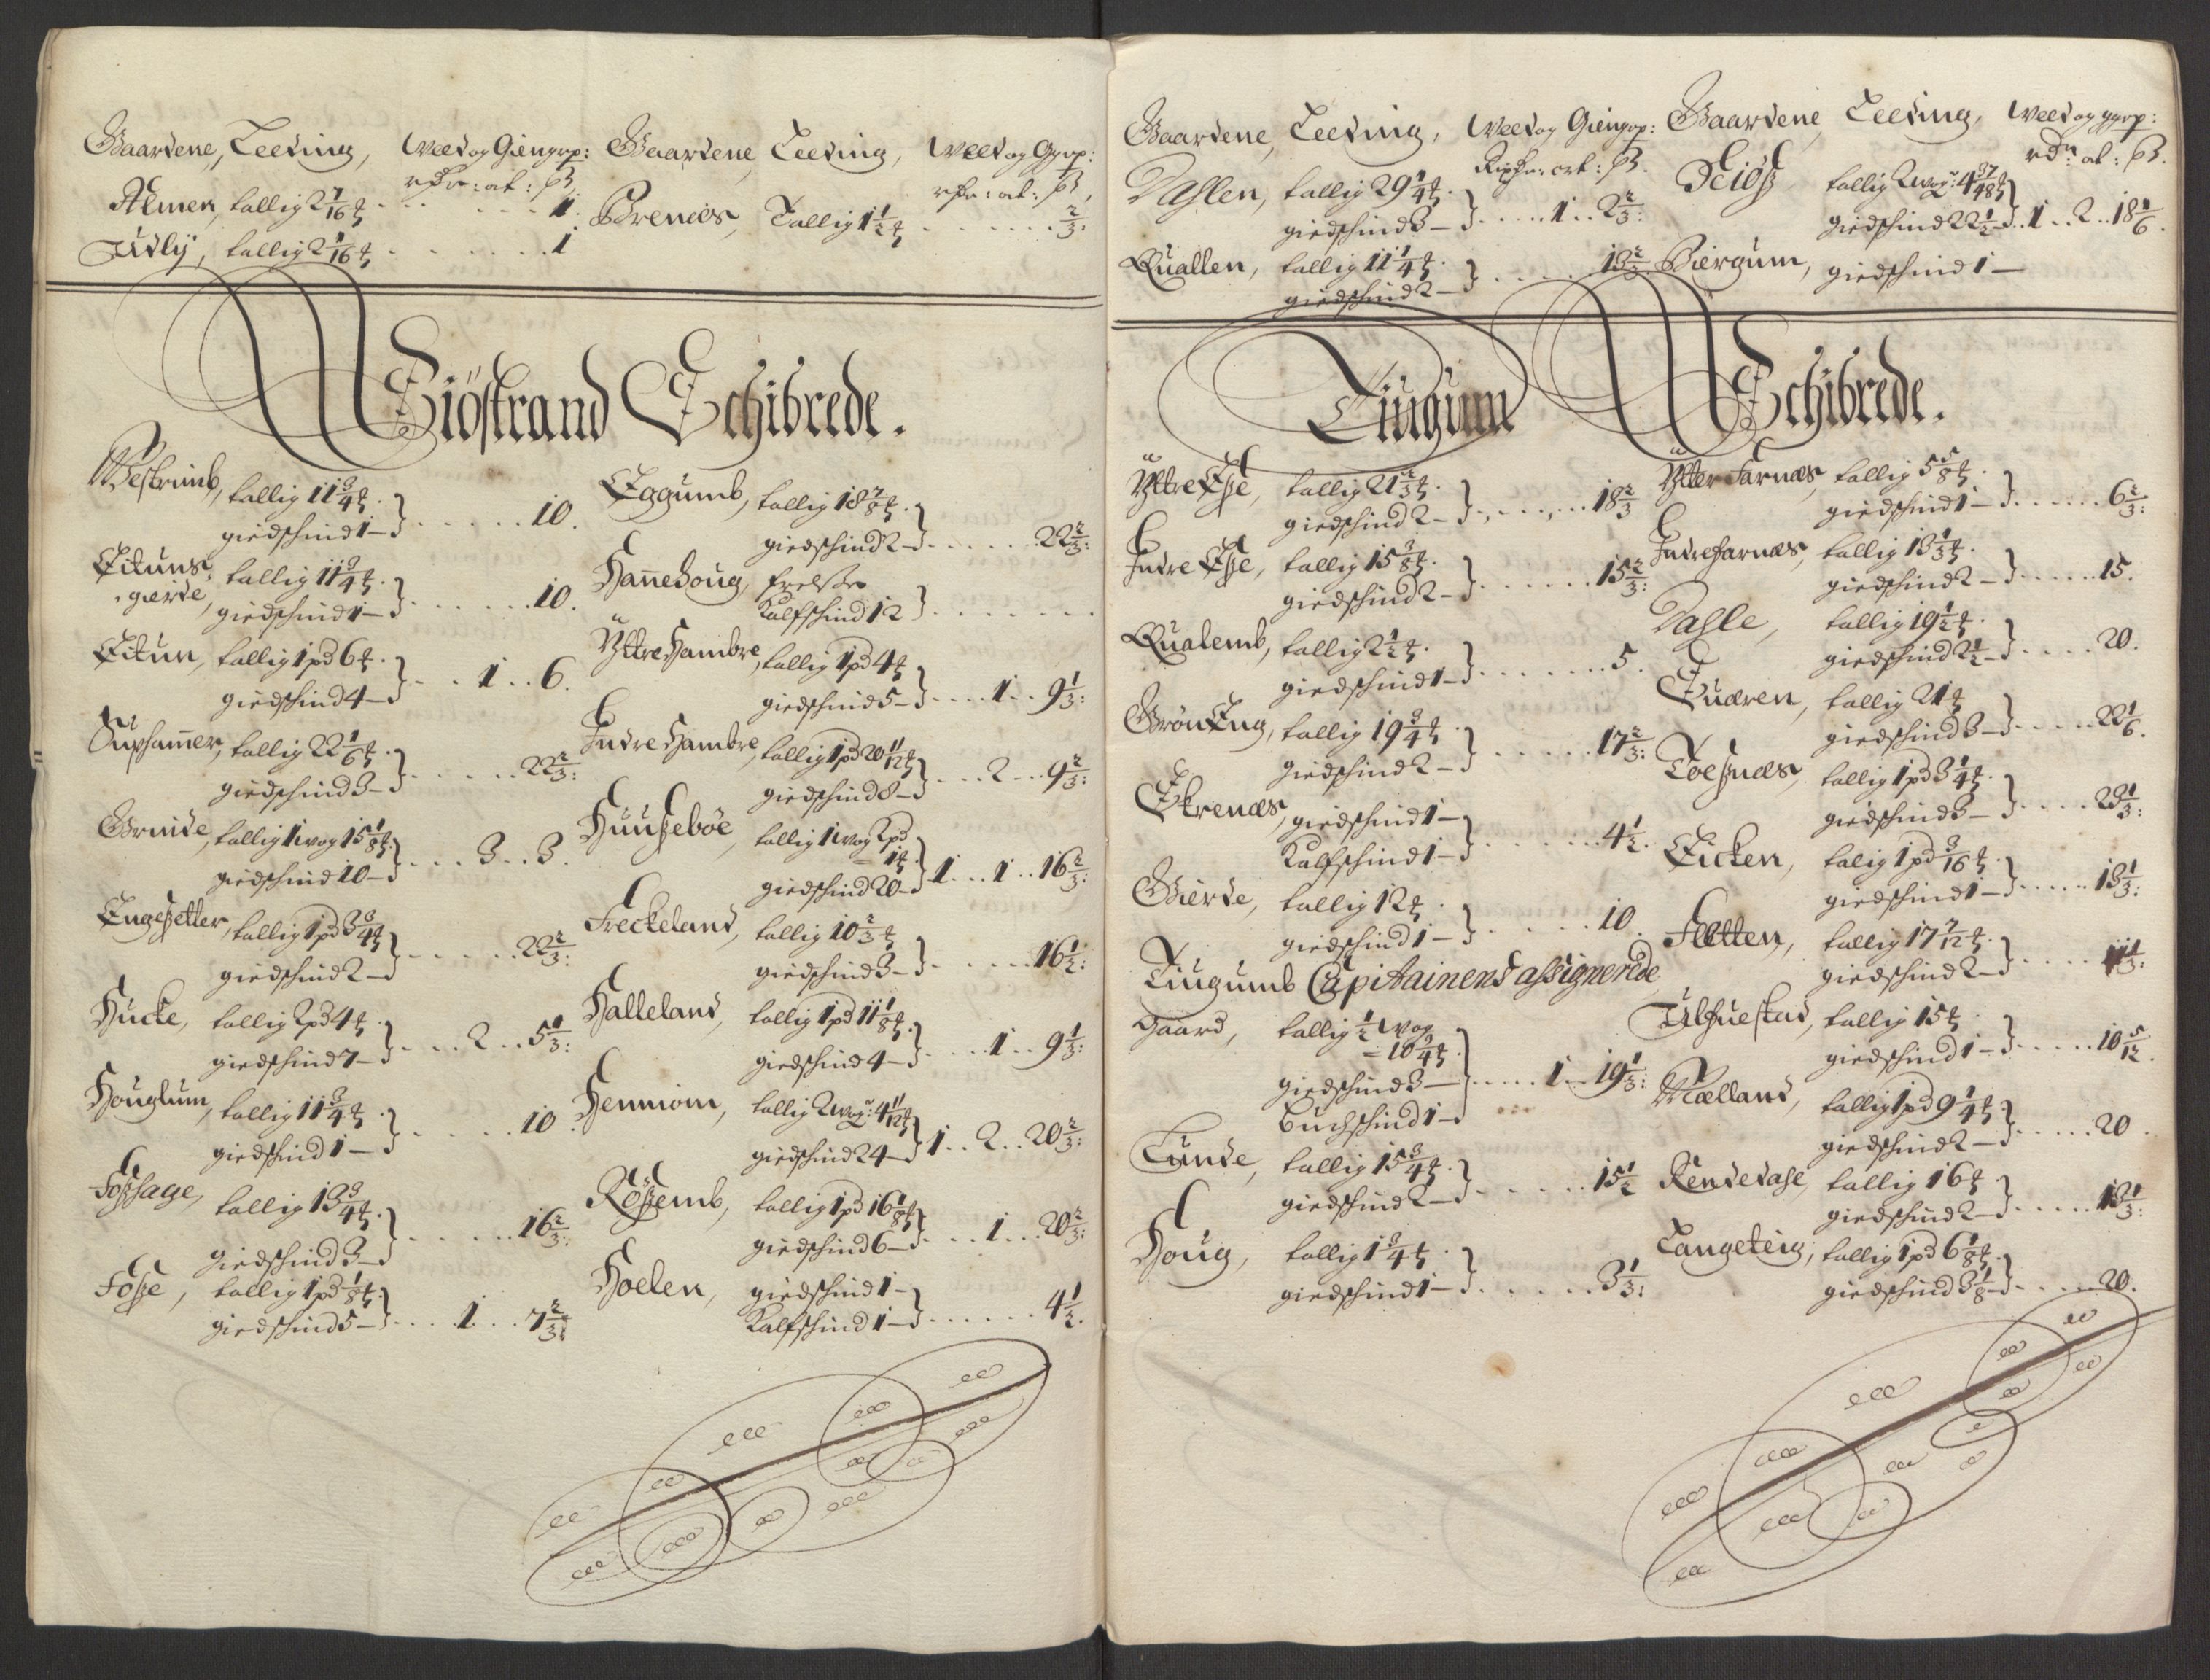 Gaardene, Leeding, Weed og Giengerp:
rdr: ort: ß
Almen, tallig 2 7/16 ℔ . . . 1.
Tufly, tallig 2 1/16 ℔ . . . 1
Gaardene Leeding, Weed og Ggrp:
rdr: ort: ß,
Brenæs, Tallig 1 1/2 ℔ . . . 2/3:
Siöstrand Schibrede.
Westrimb, tallig 11 3/4 ℔.
giedschind 1 — . . . 10.
Eituns
gierde, tallig 11 3/4 ℔.
giedschind 1 — . . . 10.
Eitun, tallig 1 pd 6 ℔.
giedschind 4 — . . 1 . . 6.
Suphamer, tallig 22 1/6 ℔.
giedschind 3 — . . . 22 2/3:
Grinde, tallig 1 wog 15 1/8 ℔.
giedschind 10 — . . . 3 . . 3.
Engesetter, tallig 1 pd 3 3/4 ℔
giedschind 2 — . . . 22 2/3:
Hucke, tallig 2 pd 4 ℔.
giedschind 7 — . . . 2 . . 5 1/3:
Houglum, tallig 11 3/4 ℔.
giedschind 1 — . . . 10.
Foshage, tallig 13 3/4 ℔.
giedschind 3 — . . . 16 2/3:
Fosse, tallig 1 pd 1/8 ℔.
giedschind 5 — . . . 1 . . 7 2/3:
Eggumb, tallig 18 7/8 ℔.
giedschind 2 — . . . 22 2/3:
Hannehoug, frelsse
Kalfschind 12 . . .
Yttre Hambre, tallig 1 pd 4 ℔
giedschind 5 — . . . 1 . . 9 1/3:
Indre Hambre, tallig 1 pd 20 11/12 ℔
giedschind 8 — . . . 2 . . 9 2/3:
Hunsebøe tallig 1 wog 2 pd
— 1 ℔
giedschind 20 — 1 . . 1 . . 16 2/3:
Freckeland, tallig 10 2/3 ℔
giedschind 3 — . . . 16 1/2:
Halleland, tallig 1 pd 11 1/8 ℔.
giedschind 4 — . . . 1 . . 9 1/3:
Henniom, tallig 2 wog: 4 11/12 ℔
giedschind 24 — 1 . . 2 . . 20 2/3:
Røssemb, tallig 1 pd 16 1/8 ℔
giedschind 6 — . . . 1 . . 20 2/3:
Hoelen, giedschind 1 —
Kalfschind 1 — . . . 4 1/2.
Gaardene, Leeding, Weed og Giengrp:
Rixdr: ort: ß.
Dahlen, tallig 29 1/4 ℔.
giedschind 3 — . . . 1 . . 2 2/3:
Quallen, tallig 11 1/4 ℔.
giedschind 2 — . . . 13 2/3.
Gaardene, Leeding, Weed og ggrp:
rdr: ort: ß.
Seiøs tallig 2 wog: 4 37/48 ℔
giedschind 22 1/2 — 1 . . 2 . . 18 1/6.
Biergum, giedschind 1 —
Tiugum Schibrede.
Yttre Esse, tallig 21 2/3 ℔.
giedschind 2 — . . . 18 2/3
Indre Esse, tallig 15 3/8 ℔.
giedschind 2 — . . . 15 2/3:
Qualemb, tallig 2 1/2 ℔.
giedschind 1 — . . . 5.
Grøn Eng, tallig 19 3/4 ℔.
giedschind 2 — . . . 17 2/3:
Ekrenæs, giedschind 1 —
Kalfschind 1 — . . . 4 1/2.
Gierde, tallig 12 ℔.
giedschind 1 — . . . 10.
Tiugumb Capitainens assignerede
Gaard, tallig 1/2 wog
— 10 3/4 ℔.
giedschind 3 —
Buchschind 1 — . . . 1 . . 19 1/3:
Lunde, tallig 15 3/4 ℔.
giedschind 2 — . . . 15 1/2
Houg, tallig 1 3/4 ℔.
giedschind 1 — . . . 3 1/3:
Ytter Farnæs, tallig 5 5/8 ℔.
giedschind 1 — . . . 6 2/3:
Indrefarnæs, tallig 13 1/3 ℔.
giedschind 2 — . . . 15.
Dahle, tallig 19 1/2 ℔.
giedschind 2 1/2 — . . . 20.
Tuæren, tallig 21 ℔
giedschind 3 — . . . 22 1/6.
Toesnæs, tallig 1 pd 3 1/4 ℔.
giedschind 3 — . . . 23 1/3:
Eicken, talig 1 pd 3/16 ℔.
giedschind 1 — . . . 13 1/3:
Fletten, tallig 17 7/12 ℔.
giedschind 2 — . . .
Ulfuestad, tallig 15 ℔.
giedschind 1 — . . . 10 5/12.
Mælland, tallig 1 pd 9 1/4 ℔.
giedschind 2 — . . . 20.
Rendedahl, tallig 16 ℔
giedschind 2 — . . . 13 1/3:
Langeteig, tallig 1 pd 6 1/8 ℔.
giedschind 3 1/8 — . . . 20.